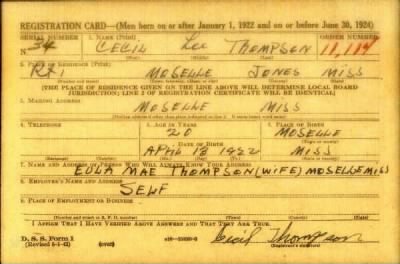 REGISTRATION CARD—(Men born on or after January 1, 1922 and on or before June 30, 1924)
SERIAL NUMBER 1. NAME (Print) ORDER NUMBER
N 34 CECIL Lee THOMPSON 11,114
(First) (Middle) (Last)
2. PLACE OF RESIDENCE (Print)
Rt 1 MOSELLE JONES MISS
(Number and street) (Town, township, village, or city) (County) (State)
[THE PLACE OF RESIDENCE GIVEN ON THE LINE ABOVE WILL DETERMINE LOCAL BOARD
JURISDICTION; LINE 2 OF REGISTRATION CERTIFICATE WILL BE IDENTICAL]
3. MAILING ADDRESS
MOSELLE MISS
[Mailing address if other than place indicated on line 2. If same insert word same]
4. TELEPHONE 5. AGE IN YEARS 6. PLACE OF BIRTH
20 MOSELLE
DATE OF BIRTH (Town or county)
APRL 13 1922 MISS
(Exchange) (Number) (Mo.) (Day) (Yr.) (State or country)
7. NAME AND ADDRESS OF PERSON WHO WILL ALWAYS KNOW YOUR ADDRESS
EULA MAE THOMPSON (WIFE) MOSELLE MISS
8. EMPLOYER'S NAME AND ADDRESS
SELF
9. PLACE OF EMPLOYMENT OR BUSINESS
(Number and street or R. F. D. number) (Town) (County) (State)
I AFFIRM THAT I HAVE VERIFIED ABOVE ANSWERS AND THAT THEY ARE TRUE.
D. S. S. Form 1
(Revised 6-1-42) (over) Cecil Thompson
(Registrant's signature)